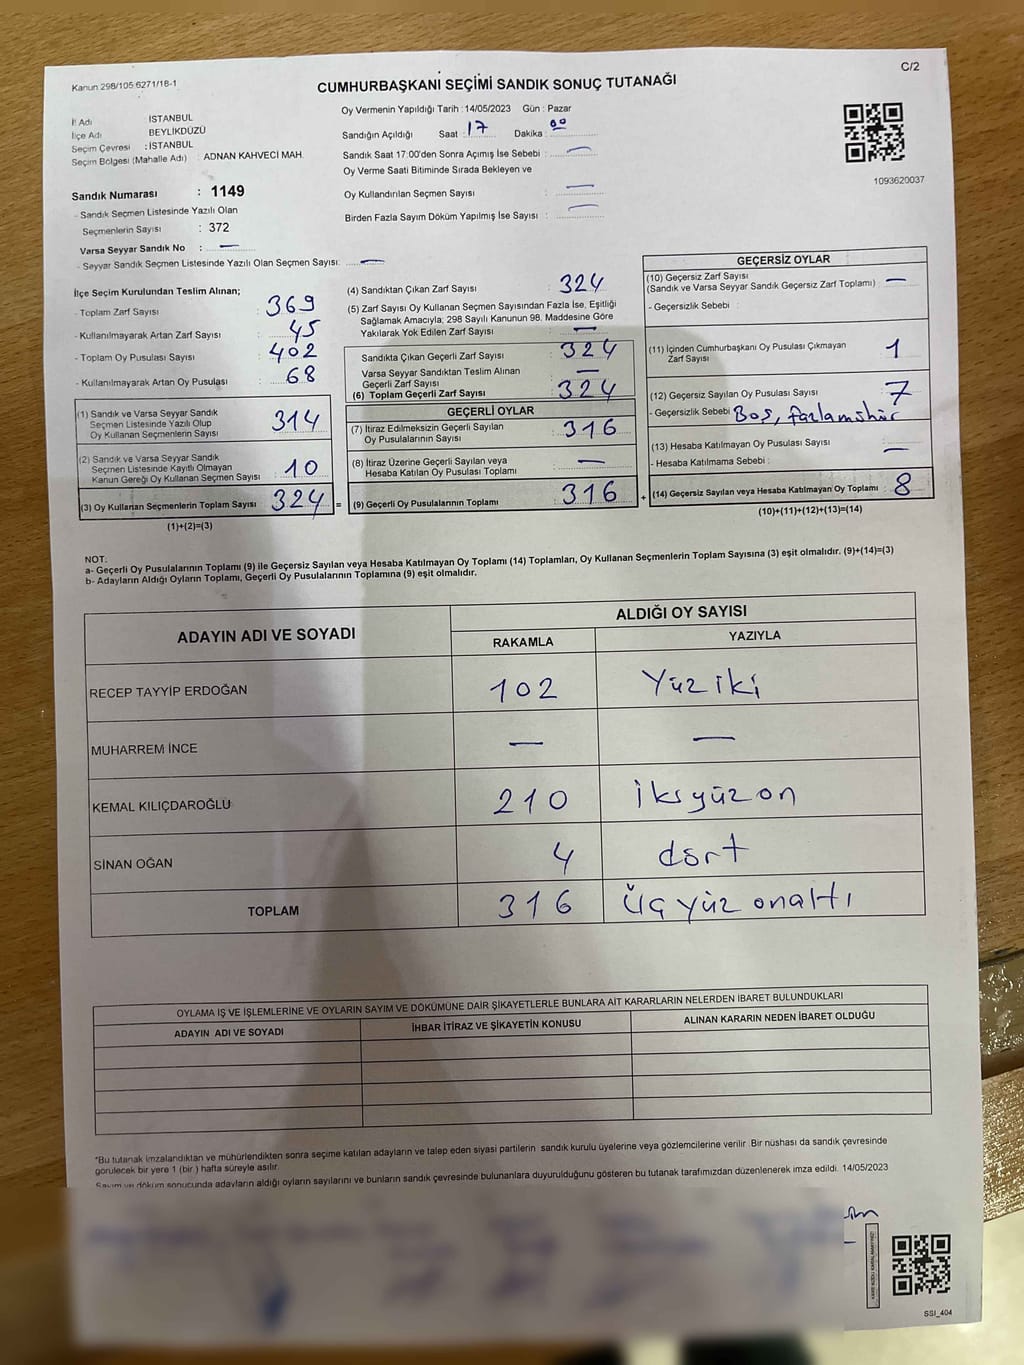 C/2
Kanun 298/105 6271/18-1
CUMHURBAŞKANI SEÇİMİ SANDIK SONUÇ TUTANAĞI
İl Adı : İSTANBUL
İlçe Adı BEYLİKDÜZÜ
Seçim Çevresi : İSTANBUL
Seçim Bölgesi (Mahalle Adı) : ADNAN KAHVECİ MAH.
Oy Vermenin Yapıldığı Tarih : 14/05/2023 Gün : Pazar
Sandığın Açıldığı Saat : 17 Dakika : 00
Sandık Saat 17:00'den Sonra Açımış İse Sebebi : —
Oy Verme Saati Bitiminde Sırada Bekleyen ve
Oy Kullandırılan Seçmen Sayısı : —
Birden Fazla Sayım Döküm Yapılmış İse Sayısı : —
1093620037
Sandık Numarası : 1149
- Sandık Seçmen Listesinde Yazılı Olan
Seçmenlerin Sayısı : 372
Varsa Seyyar Sandık No : —
- Seyyar Sandık Seçmen Listesinde Yazılı Olan Seçmen Sayısı: —
İlçe Seçim Kurulundan Teslim Alınan;
- Toplam Zarf Sayısı : 369
- Kullanılmayarak Artan Zarf Sayısı : 45
- Toplam Oy Pusulası Sayısı : 402
- Kullanılmayarak Artan Oy Pusulası : 68
(1) Sandık ve Varsa Seyyar Sandık
Seçmen Listesinde Yazılı Olup
Oy Kullanan Seçmenlerin Sayısı : 314
(2) Sandık ve Varsa Seyyar Sandık
Seçmen Listesinde Kayıtlı Olmayan
Kanun Gereği Oy Kullanan Seçmen Sayısı : 10
(3) Oy Kullanan Seçmenlerin Toplam Sayısı : 324 =
(1)+(2)=(3)
(4) Sandıktan Çıkan Zarf Sayısı : 324
(5) Zarf Sayısı Oy Kullanan Seçmen Sayısından Fazla İse, Eşitliği
Sağlamak Amacıyla; 298 Sayılı Kanunun 98. Maddesine Göre
Yakılarak Yok Edilen Zarf Sayısı : —
Sandıkta Çıkan Geçerli Zarf Sayısı : 324
Varsa Seyyar Sandıktan Teslim Alınan
Geçerli Zarf Sayısı : —
(6) Toplam Geçerli Zarf Sayısı : 324
GEÇERLİ OYLAR
(7) İtiraz Edilmeksizin Geçerli Sayılan
Oy Pusulalarının Sayısı : 316
(8) İtiraz Üzerine Geçerli Sayılan veya
Hesaba Katılan Oy Pusulası Toplamı : —
(9) Geçerli Oy Pusulalarının Toplamı : 316 +
GEÇERSİZ OYLAR
(10) Geçersiz Zarf Sayısı
(Sandık ve Varsa Seyyar Sandık Geçersiz Zarf Toplamı) : —
- Geçersizlik Sebebi :
(11) İçinden Cumhurbaşkanı Oy Pusulası Çıkmayan
Zarf Sayısı : 1
(12) Geçersiz Sayılan Oy Pusulası Sayısı : 7
- Geçersizlik Sebebi : Boş, fazlamühür
(13) Hesaba Katılmayan Oy Pusulası Sayısı : —
- Hesaba Katılmama Sebebi :
(14) Geçersiz Sayılan veya Hesaba Katılmayan Oy Toplamı : 8
(10)+(11)+(12)+(13)=(14)
NOT:
a- Geçerli Oy Pusulalarının Toplamı (9) ile Geçersiz Sayılan veya Hesaba Katılmayan Oy Toplamı (14) Toplamları, Oy Kullanan Seçmenlerin Toplam Sayısına (3) eşit olmalıdır. (9)+(14)=(3)
b- Adayların Aldığı Oyların Toplamı, Geçerli Oy Pusulalarının Toplamına (9) eşit olmalıdır.
ADAYIN ADI VE SOYADI ALDIĞI OY SAYISI
RAKAMLA YAZIYLA
RECEP TAYYİP ERDOĞAN 102 Yüz iki
MUHARREM İNCE — —
KEMAL KILIÇDAROĞLU 210 ikiyüz on
SİNAN OĞAN 4 dört
TOPLAM 316 Üçyüz onaltı
OYLAMA İŞ VE İŞLEMLERİNE VE OYLARIN SAYIM VE DÖKÜMÜNE DAİR ŞİKAYETLERLE BUNLARA AİT KARARLARIN NELERDEN İBARET BULUNDUKLARI
ADAYIN ADI VE SOYADI İHBAR İTİRAZ VE ŞİKAYETİN KONUSU ALINAN KARARIN NEDEN İBARET OLDUĞU
*Bu tutanak imzalandıktan ve mühürlendikten sonra seçime katılan adayların ve talep eden siyasi partilerin sandık kurulu üyelerine veya gözlemcilerine verilir. Bir nüshası da sandık çevresinde
görülecek bir yere 1 (bir ) hafta süreyle asılır.
Sayım ve döküm sonucunda adayların aldığı oyların sayılarını ve bunların sandık çevresinde bulunanlara duyurulduğunu gösteren bu tutanak tarafımızdan düzenlenerek imza edildi. 14/05/2023
SSI_404